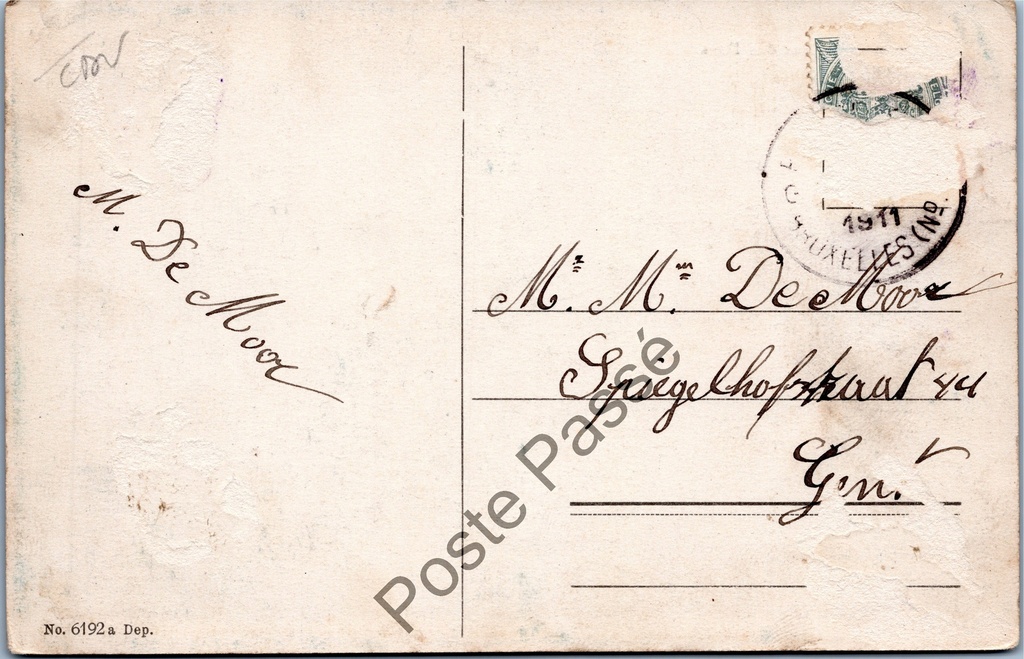 M. De Moor
1911
BRUXELLES (No.
Mr. Mm De Moor
Spiegelhofstraat 44
Gent
Poste Passé
No. 6192a Dep.